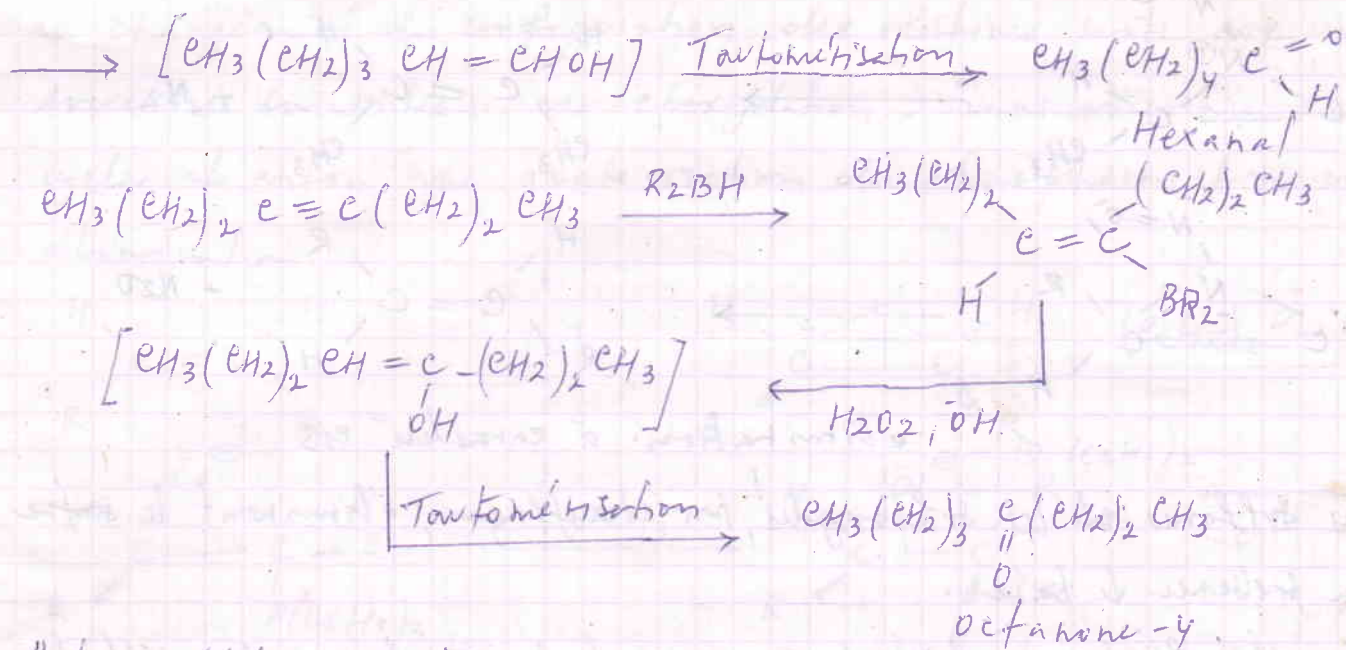 ⟶ [CH3(CH2)3 CH = CHOH] Tautomérisation ⟶ CH3(CH2)4 C =O
H
Hexanal
CH3(CH2)2 C ≡ C(CH2)2 CH3 R2BH ⟶ CH3(CH2)2 (CH2)2CH3
C = C
H BR2
[CH3(CH2)2 CH = C -(CH2)2 CH3]
OH
H2O2, ŌH
Tautomérisation ⟶ CH3(CH2)3 C (CH2)2 CH3
||
O
Octanone-4.